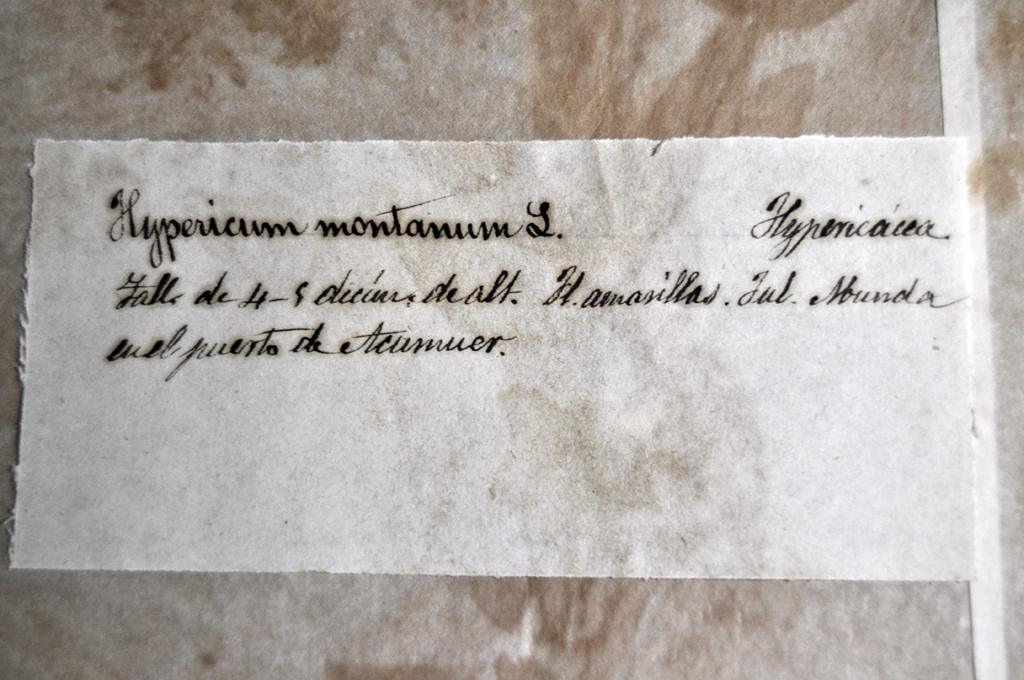 Hypericum montanum L. Hypericácea.
Tall. de 4-5 decím. de alt. Fl. amarillas. Jul. Abunda
en el puerto de Acumuer.